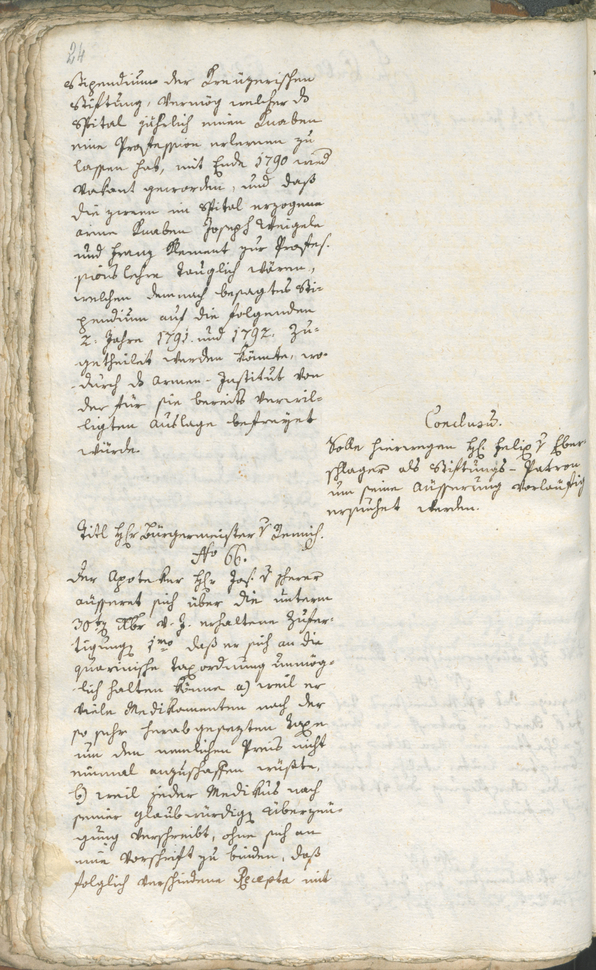 24
Stipendium der Kreuzerischen
Stiftung, vermög welcher ds
Spital jährlich einen Knaben
eine Profession erlernen zu
lassen hat, mit Ende 1790 wird
vakant geworden, und daß
die zween im Spital erzogene
arme Knaben Joseph Weigele
und Franz Klement zur Profes-
sionslehre tauglich wären,
welchen demnach besagtes Sti-
pendium auf die folgenden
2. Jahre 1791 und 1792. zu-
getheilet werden könnte, wo-
durch ds Armen-Institut von
der für sie bereits verwil-
ligten Auslage befreyet
würde.
Conclusu.
Solle hierwegen Hh: Felix v Eber-
schlager als Stiftungs-Patron
um seine Äusserung vorläufig
ersuchet werden.
Titl Hhr Bürgermeister v
No 66.
Der Apoteker Hhr Jos. v
äusseret sich über die unterm
30ten Xbr v. J. erhaltene Zufer-
tigung, 1mo daß er sich an die
quarinische Taxordnung unmög-
lich halten könne a) weil er
viele Medikamenten nach der
so sehr herabgesezten Taxe
um den nemlichen Preis nicht
einmal anzuschaffen wüßte,
b) weil jeder Medikus nach
seiner glaubwürdigen Überzeu-
gung verschreibt, ohne sich an
eine Vorschrift zu binden, daß
folglich verschiedene Recepta mit